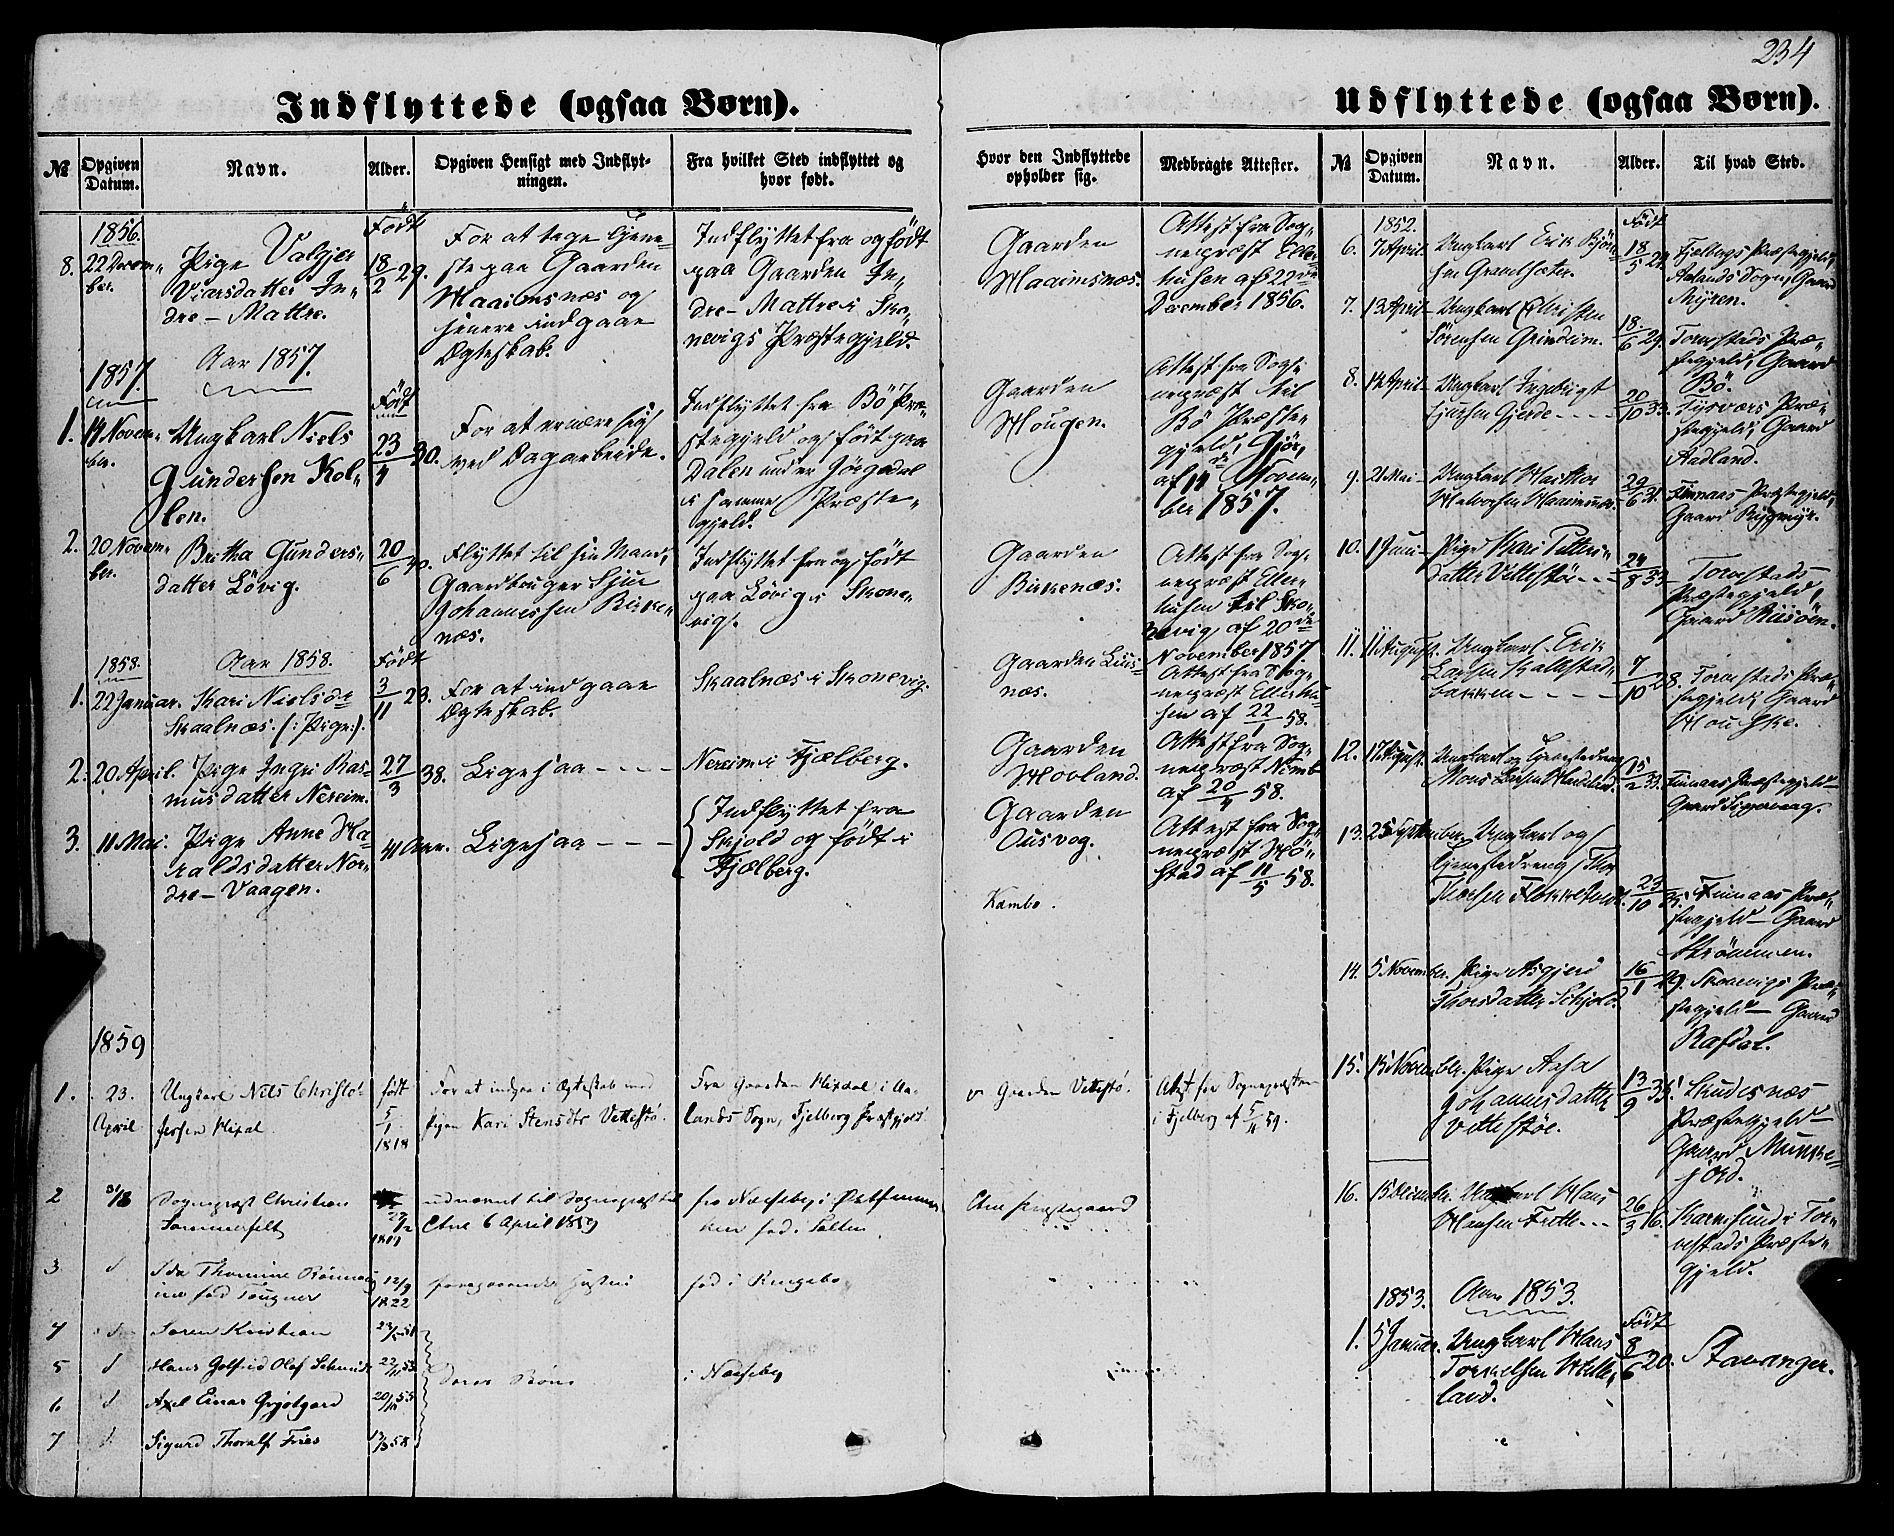 234
Indflyttede (ogsaa Børn).
Udflyttede (ogsaa Børn).
№
Opgiven Datum.
Navn.
Alder.
Opgiven Hensigt med Indflyt-
ningen.
Fra hvilket Sted indflyttet og
hvor født.
Hvor den Indflyttede
opholder sig.
Medbragte Attester.
№
Opgiven Datum.
Navn.
Alder.
Til hvad Sted.
1856.
8. 22 Decem-
ber.
Pige Valgjer
Viarsdatter In-
dre-Mattre.
Født
18/2 29.
For at tage Tjene-
ste paa Gaarden
Maaimsnæs og
senere indgaae
Ægteskab.
Indflyttet fra og født
paa Gaarden In-
dre-Mattre i Sko-
nevigs Præstegjeld.
Gaarden
Maaimsnæs.
Attest fra Sog-
nepræst Eller-
husen af 22de
December 1856.
1857.
Aar 1857.
1. 14 Novem-
ber.
Ungkarl Niels
Gundersen Kol-
len.
Født
23/4 30.
For at ernære sig
ved Dagarbeide.
Indflyttet fra Bö Præ-
stegjeld og født paa
Dalen under
i samme Præste-
gjeld.
Gaarden
Hougen.
Attest fra Sog-
nepræst til
Bö Præste-
gjeld,
af 14de Novem-
ber 1857.
2. 20 Novem-
ber.
Britha Gunders-
datter Lövig.
20/6 40.
Flyttet til sin Mand,
Gaardbruger Sjur
Johannessen Birke-
næs.
Indflyttet fra og født
paa Lövig i Skone-
vig.
Gaarden
Birkenæs.
Attest fra Sog-
nepræst Eller-
husen til Sko-
nevig, af 20de
November 1857.
1858.
Aar 1858.
1. 22 Januar.
Kari Nielsdr
Skaalnæs. (: Pige :).
Født
3/11 23.
For at indgaae
Ægteskab.
Skaalnæs i Skonevig.
Gaarden Lius-
næs.
Attest fra Sog-
nepræst Ellerhu-
sen af 22/1 58.
2. 20 April.
Pige Ingri Ras-
musdatter Nereim.
27/3 38.
Ligesaa - - - -
Nereim i Fjælberg.
Gaarden
Hovland.
Attest fra Sog-
nepræst
af 20/4 58.
3. 11 Mai.
Pige Anne Ha-
raldsdatter Nor-
dre-Vaagen.
41 Aar.
Ligesaa - - - -
Indflyttet fra
Skjold og født i
Fjælberg.
Gaarden
Ousvog.
Attest fra Sog-
nepræst Hö-
stad af 11/5 58.
Kambo.
1859
1. 23.
April
Ungkarl Nils Christo-
fersen
født
5/1
1818
For at indgaa i Ægteskab med
Pigen Kari Stensdtr Vettestø.
Fra Gaarden i Aa-
lands Sogn, Fjelberg Præstegjeld
Gaarden Vettestø.
Attest fra Sognepræsten
i Fjelberg af 59.
2
Sognepræst Christian
Sommerfelt
1819
udnævnt til Sognepræst til
Etne 6 April 1859
fra Næseby i
Etne Præstegaard
3
Ida Thomine
født Tougner
12/9
1822
foregaaendes Hustru
fød i Ringebo
4
Søren Kristian
5
Hans Gotfried Olaf Schmidt
6
Axel Einar Grjotgard
7
Sigurd Thoralf Fries
deres Børn
i Næseby
1852.
Født
6. 7 April
Ungkarl Erik Björn-
sen Grandsæter.
18/5 24.
Fjelbergs Præstegjeld,
Aalands Sogn, Gaard
Myren.
7. 13 April
Ungkarl Christen
Sörensen Grindeim.
18/6 29.
Torvestads Præ-
stegjeld, Gaard
Bö.
8. 14 April
Ungkarl Ingebrigt
Sjursen Gjerde - - -
20/10 33.
Tysvær Præ-
stegjeld, Gaard
Aadland.
9. 2 Mai
Ungkarl
Halvorsen
29/6 31.
Finnaas Præstegjeld,
Gaard
10. 1 Juni
Pige Kari Petters-
datter Vettestöe - - -
24/8 33.
Torvestads
Præstegjeld,
Gaard
11. 11 August.
Ungkarl Erik
Larsen Kallestad-
bakken - - - -
7/10 28.
Torvestads Præ-
stegjeld, Gaard
Houske.
12. 17 August.
Ungkarl og Tjenestedreng
Mons Larsen
15/2 33.
Finnaas Præstegjeld
Gaard
13. 25 September
Ungkarl og
Tjenestedreng Thor
23/10
Finnaas Præ-
stegjeld - Gaard
Strömmen.
14. 5 November.
Pige Asgjerd
Thorsdatter Schjold.
16/1 29.
Skonevigs Præ-
stegjeld - Gaard
Rafdal.
15. 15 November.
Pige Aasa
Johannesdatter
Vettestöe.
13/9 35.
Skudesnæs
Præstegjeld -
Gaard Munke-
jord.
16. 15 December.
Ungkarl Hans
Hansen Fitte - - -
26/3 16.
Karmsund i Tor-
vestads Præste-
gjeld.
1853.
Aar 1853.
1. 5 Januar.
Ungkarl Hans
Torkelsen Hille-
land.
Født
8/6 20.
Stavanger.